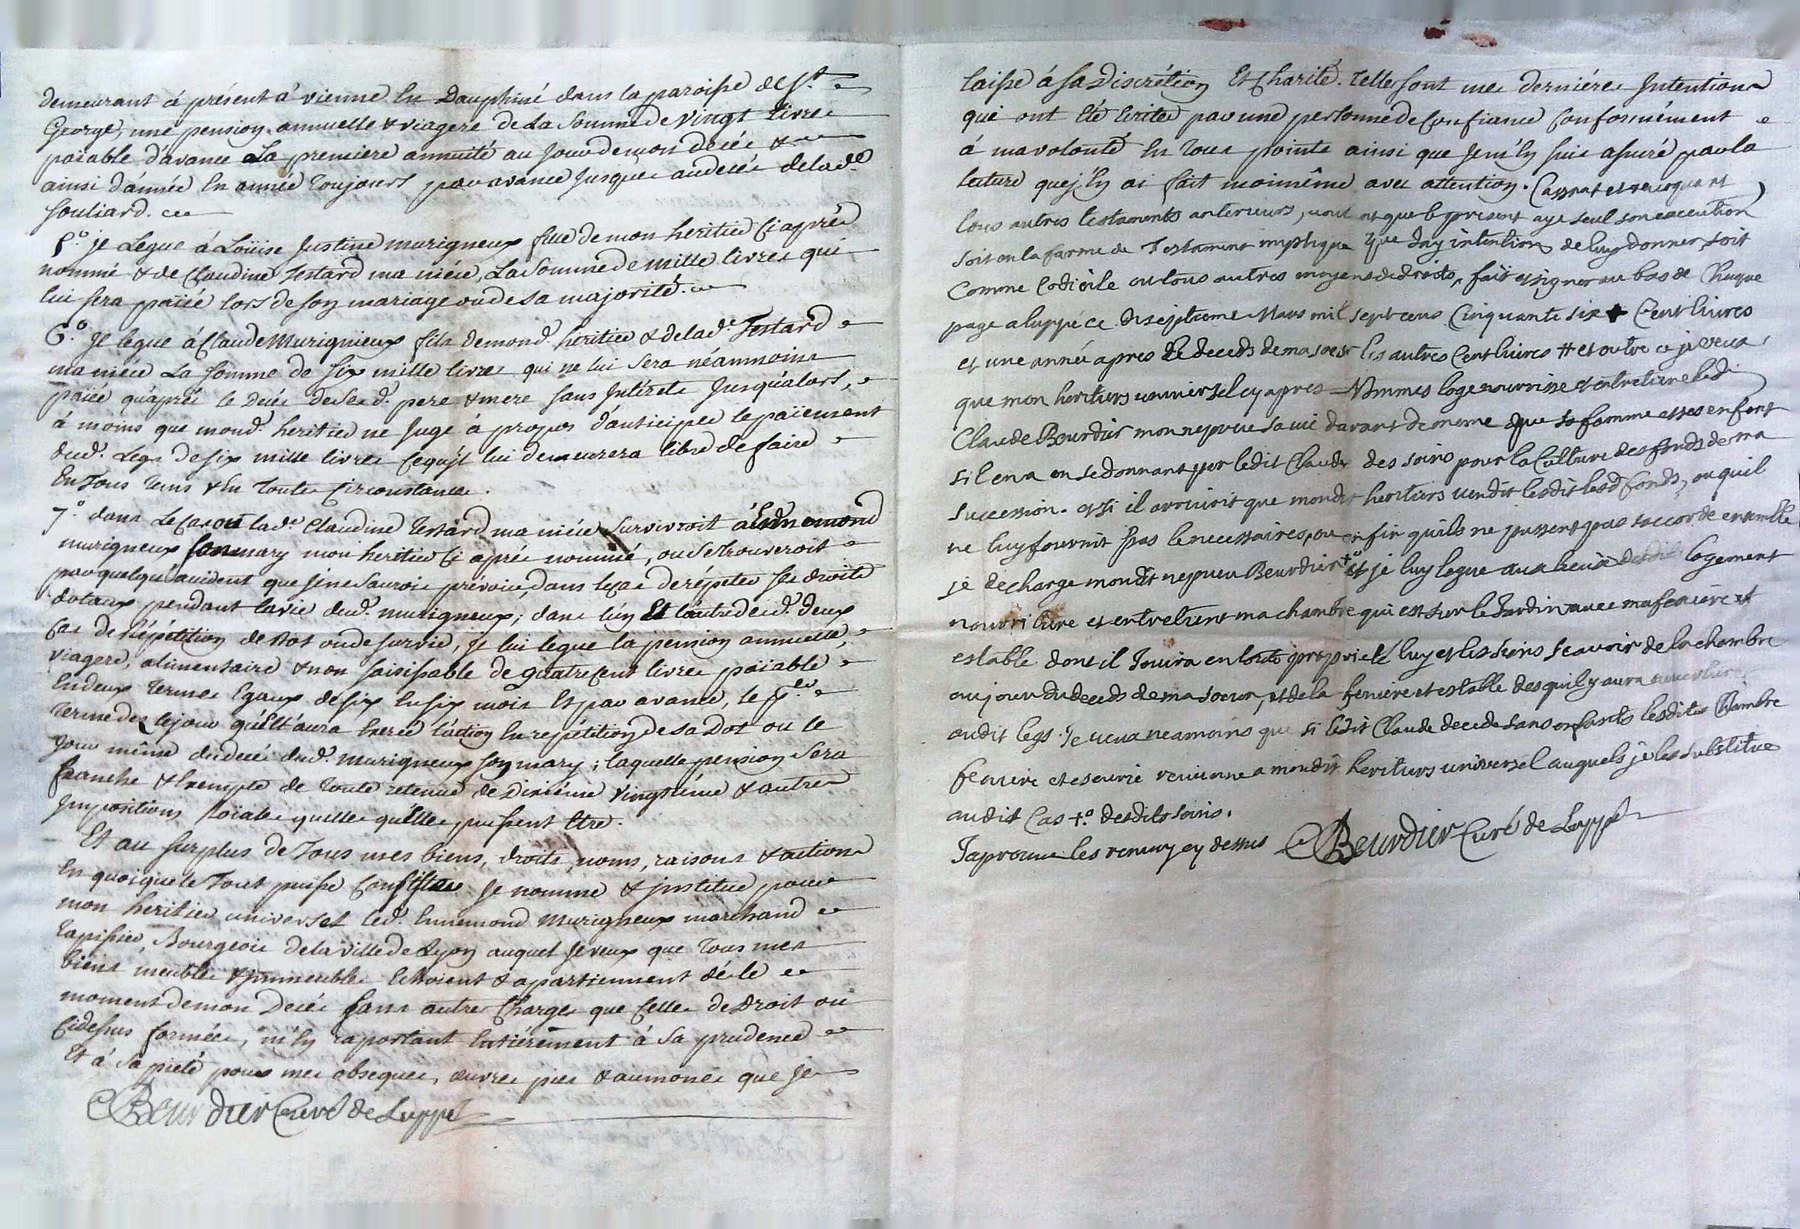 demeurant à présent à vienne En Dauphiné dans la paroisse de St.
George, une pension annuelle & viagere de La Somme de vingt Livres
païable d'avance La premiere annuité au jour de mon décés &
ainsi d'année En année Toujours par avance jusques au décés de lade.
souliard.
5.° je Legue à Loüise Justine murigneux fille de mon heritier Ci après
nommé & de Claudine Testard ma niéce La Somme de Mille Livres qui
lui sera païée lors de son mariage ou de sa majorité.
6.° Je legue à Claude Murigneux fils de mond. heritier & de lade. Testard
ma niéce La Somme de six mille livres qui ne lui sera néanmoins
païée qu'aprés le Décés de sesd. pere & mere sans Intérets Jusqu'alors,
à moins que mond. heritier ne Juge à propos d'anticiper le païement
dud. Legs de six mille livres Ce qu'il lui demeurera libre de faire
En Tous tems & En Toutes Circonstances.
7.° dans Le Cas où lade. Claudine Testard ma niéce survivroit à Ennemond
murigneux son mary mon heritier Ci après nommé, ou se trouveroit
par quelqu'accident que je ne saurois prévoir, dans le cas de répéter ses droits
dotaux pendant la vie dud. murigneux; dans l'un Et l'autre desd. deux
Cas de répétition de Dot ou de survie, je lui legue la pension annuelle,
viagere, alimentaire & non saisissable de quatre Cent livres païable
En deux Termes Egaux de six En six mois Et par avance, le per.
Terme dez le jour qu'elle aura Exercé l'action En répétition de sa Dot ou le
jour même du décés dud. Murigneux son mary; laquelle pension sera
franche & Exempte de Toute retenue de Dixiéme vingtiéme & autres
Impositions Roïales quelles qu'elles puissent Etre.
Et au surplus de Tous mes biens, droits, noms, raisons & actions
En quoi que le Tout puisse Consister Je nomme & institue pour
mon heritier universel led. Ennemond Murigneux marchand
Tapissier, Bourgeois de la ville de Lyon auquel Je veux que Tous mes
biens meubles & immeubles Echoient & apartiennent dés le
moment de mon Décés sans autres Charges que Celles de Droit ou
Cidessus formées, m'En raportant Entiérement à sa prudence
Et à sa pieté pour mes obseques, œuvres pies & aumones que Je
Beurdier Curé de Luppé
laisse à sa Discrétion Et Charité. Telles sont mes derniéres Intentions
qui ont Eté Ecrites par une personne de Confiance Conformément
à ma volonté En Tous points ainsi que je m'En suis assuré par la
lecture que j'En ai fait moi même avec attention. Cassant et revoquant
tous autres testaments anterieurs, voulant que le present aye seul son execution
soit en la forme de Testament mystique que Jay intention de luy donner soit
comme Codicile ou tous autres moyens de droits, fait et signer au bas de Chaque
page a luppé ce diseptieme Mars mil sept cens Cinquante six + Cent livres
et une année apres le deceds de ma soeur les autres Cent livres # et outre ce je veux
que mon heritiers universel cy apres Nommes loge nourrisse et entretiene led.
Claude Beurdier mon nepveu sa vie durant de meme que sa famme et ses enfant
sil en a en se donnant par ledit Claude des soins pour la Culture des fonds de ma
succession. et si il arrivoit que mondit heritiers vendit lesdit fonds, ou quil
ne luy fournit pas le necessaires, ou enfin quils ne pussent pas saccorde ensemble
je decharge mondit nepveu Beurdier +° et je luy legue au lieu desdit logement
nourriture et entretient ma chambre qui est sur le Jardin avec ma feniere et
estable dont il Jouira en toute propriete luy et les siens scavoir de la chambre
au jour du deceds de ma soeur, et de la feniere et estable des quil y aura ouverture
audit legs. Je veux neamoins que si ledit Claude decede sans enfants lesdites Chambre
feniere et escurie revienne a mondit heritiers universel auquels je les substitue
audit Cas +° desdits soins.
Japrouve les renvoy cy dessus Beurdier Curé de Luppé